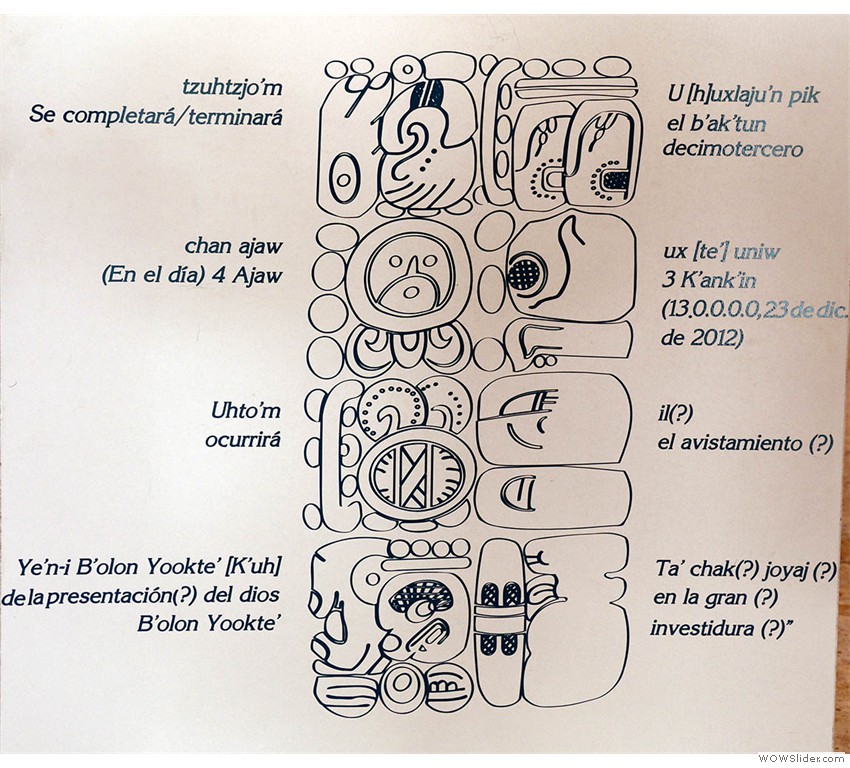 tzuhtzjo'm
Se completará/terminará
U [h]uxlaju'n pik
el b'ak'tun
decimotercero
chan ajaw
(En el día) 4 Ajaw
ux [te'] uniw
3 K'ank'in
(13.0.0.0.0,23 de dic.
de 2012)
Uhto'm
ocurrirá
il(?)
el avistamiento (?)
Ye'n-i B'olon Yookte' [K'uh]
de la presentación(?) del dios
B'olon Yookte'
Ta' chak(?) joyaj (?)
en la gran (?)
investidura (?)"
WOWSlider.com